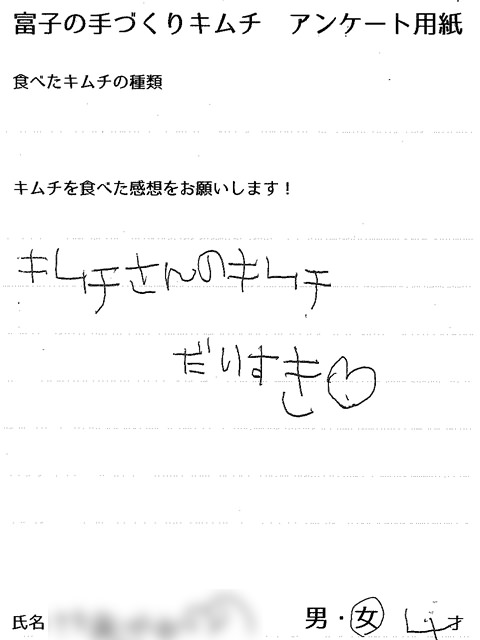 富子の手づくりキムチ　アンケート用紙
食べたキムチの種類
キムチを食べた感想をお願いします！
キムチさんのキムチ
だいすき♡
氏名
男・女 才